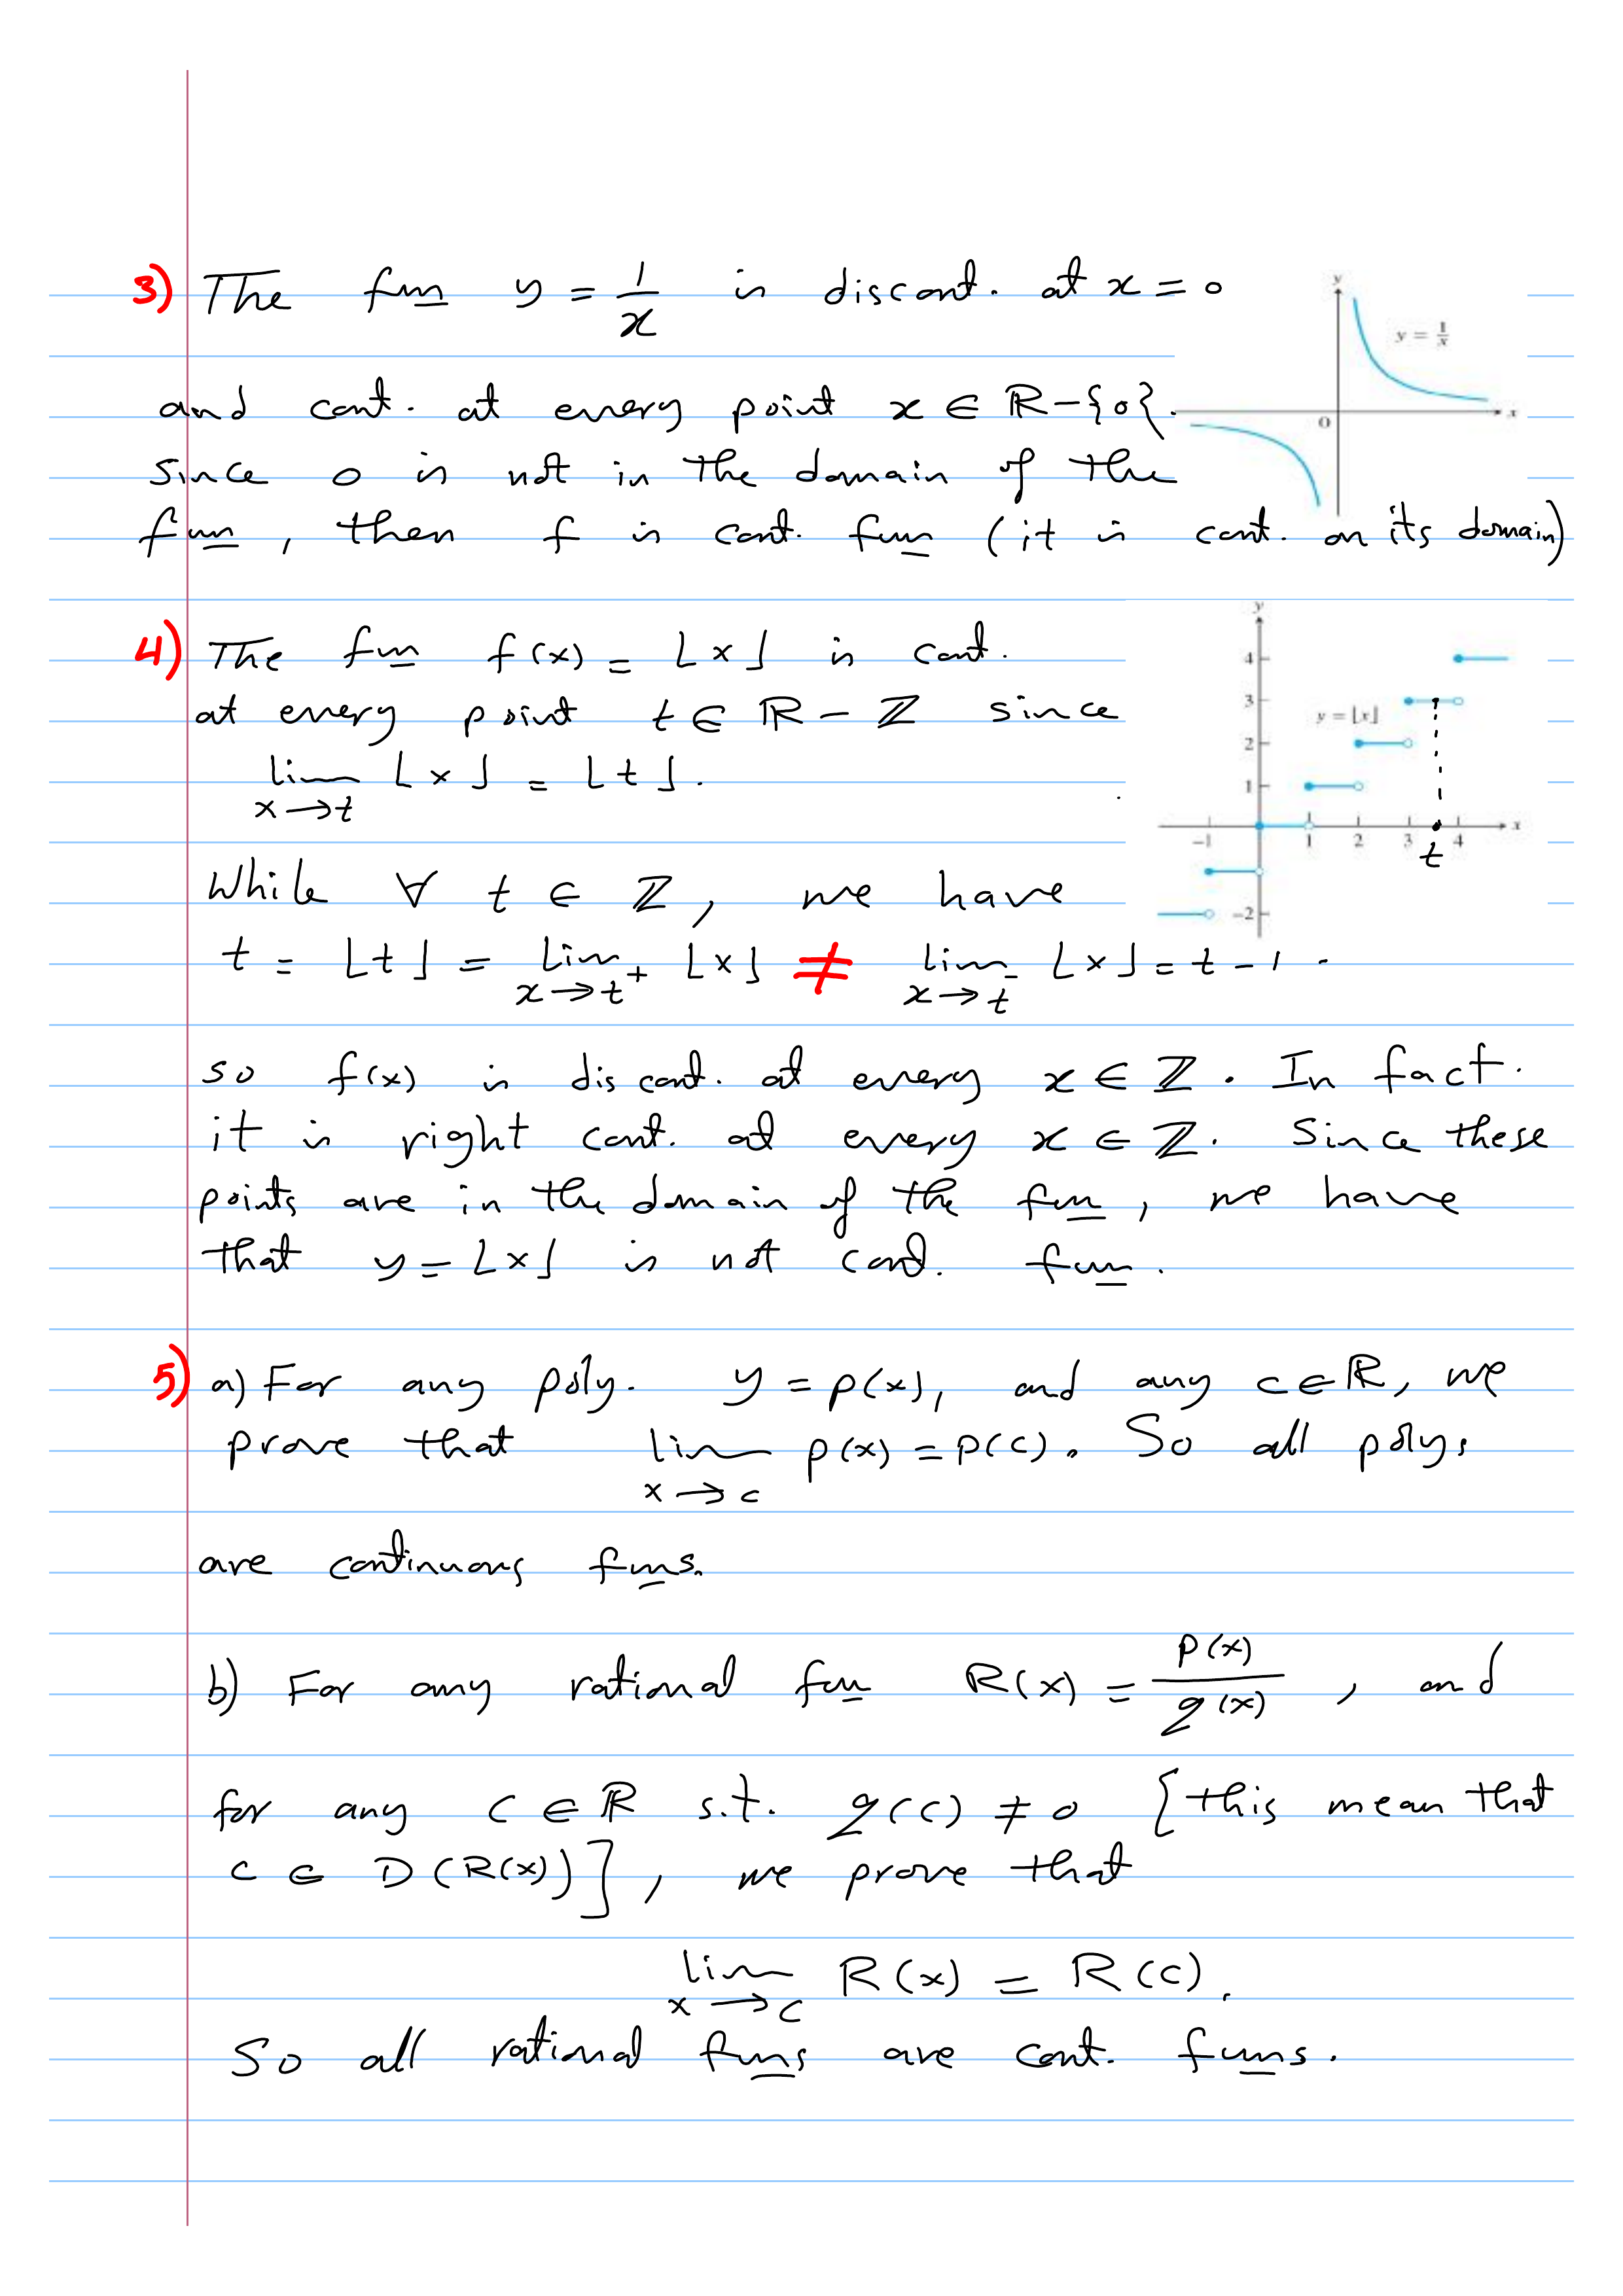 3) The fun y = 1/x is discont. at x = 0
and cont. at every point x ∈ ℝ-{0}.
since 0 is not in the domain of the
fun, then f is cont. fun (it is cont. on its domain)
y
y = 1/x
0
x
4) The fun f(x) = ⌊x⌋ is cont.
at every point t ∈ ℝ - ℤ since
lim x→t ⌊x⌋ = ⌊t⌋.
y
4
3
y = ⌊x⌋
2
1
-1 1 2 3 4 x
t
-2
While ∀ t ∈ ℤ, we have
t = ⌊t⌋ = lim x→t⁺ ⌊x⌋ ≠ lim x→t⁻ ⌊x⌋ = t - 1.
so f(x) is discont. at every x ∈ ℤ. In fact.
it is right cont. at every x ∈ ℤ. Since these
points are in the domain of the fun, we have
that y = ⌊x⌋ is not cont. fun.
5) a) For any poly. y = p(x), and any c ∈ ℝ, we
prove that lim x→c p(x) = p(c). So all poly.
are continuous funs.
b) For any rational fun R(x) = p(x)/q(x), and
for any c ∈ ℝ s.t. q(c) ≠ 0 [this mean that
c ∈ D(R(x))], we prove that
lim x→c R(x) = R(c).
So all rational funs are cont. funs.